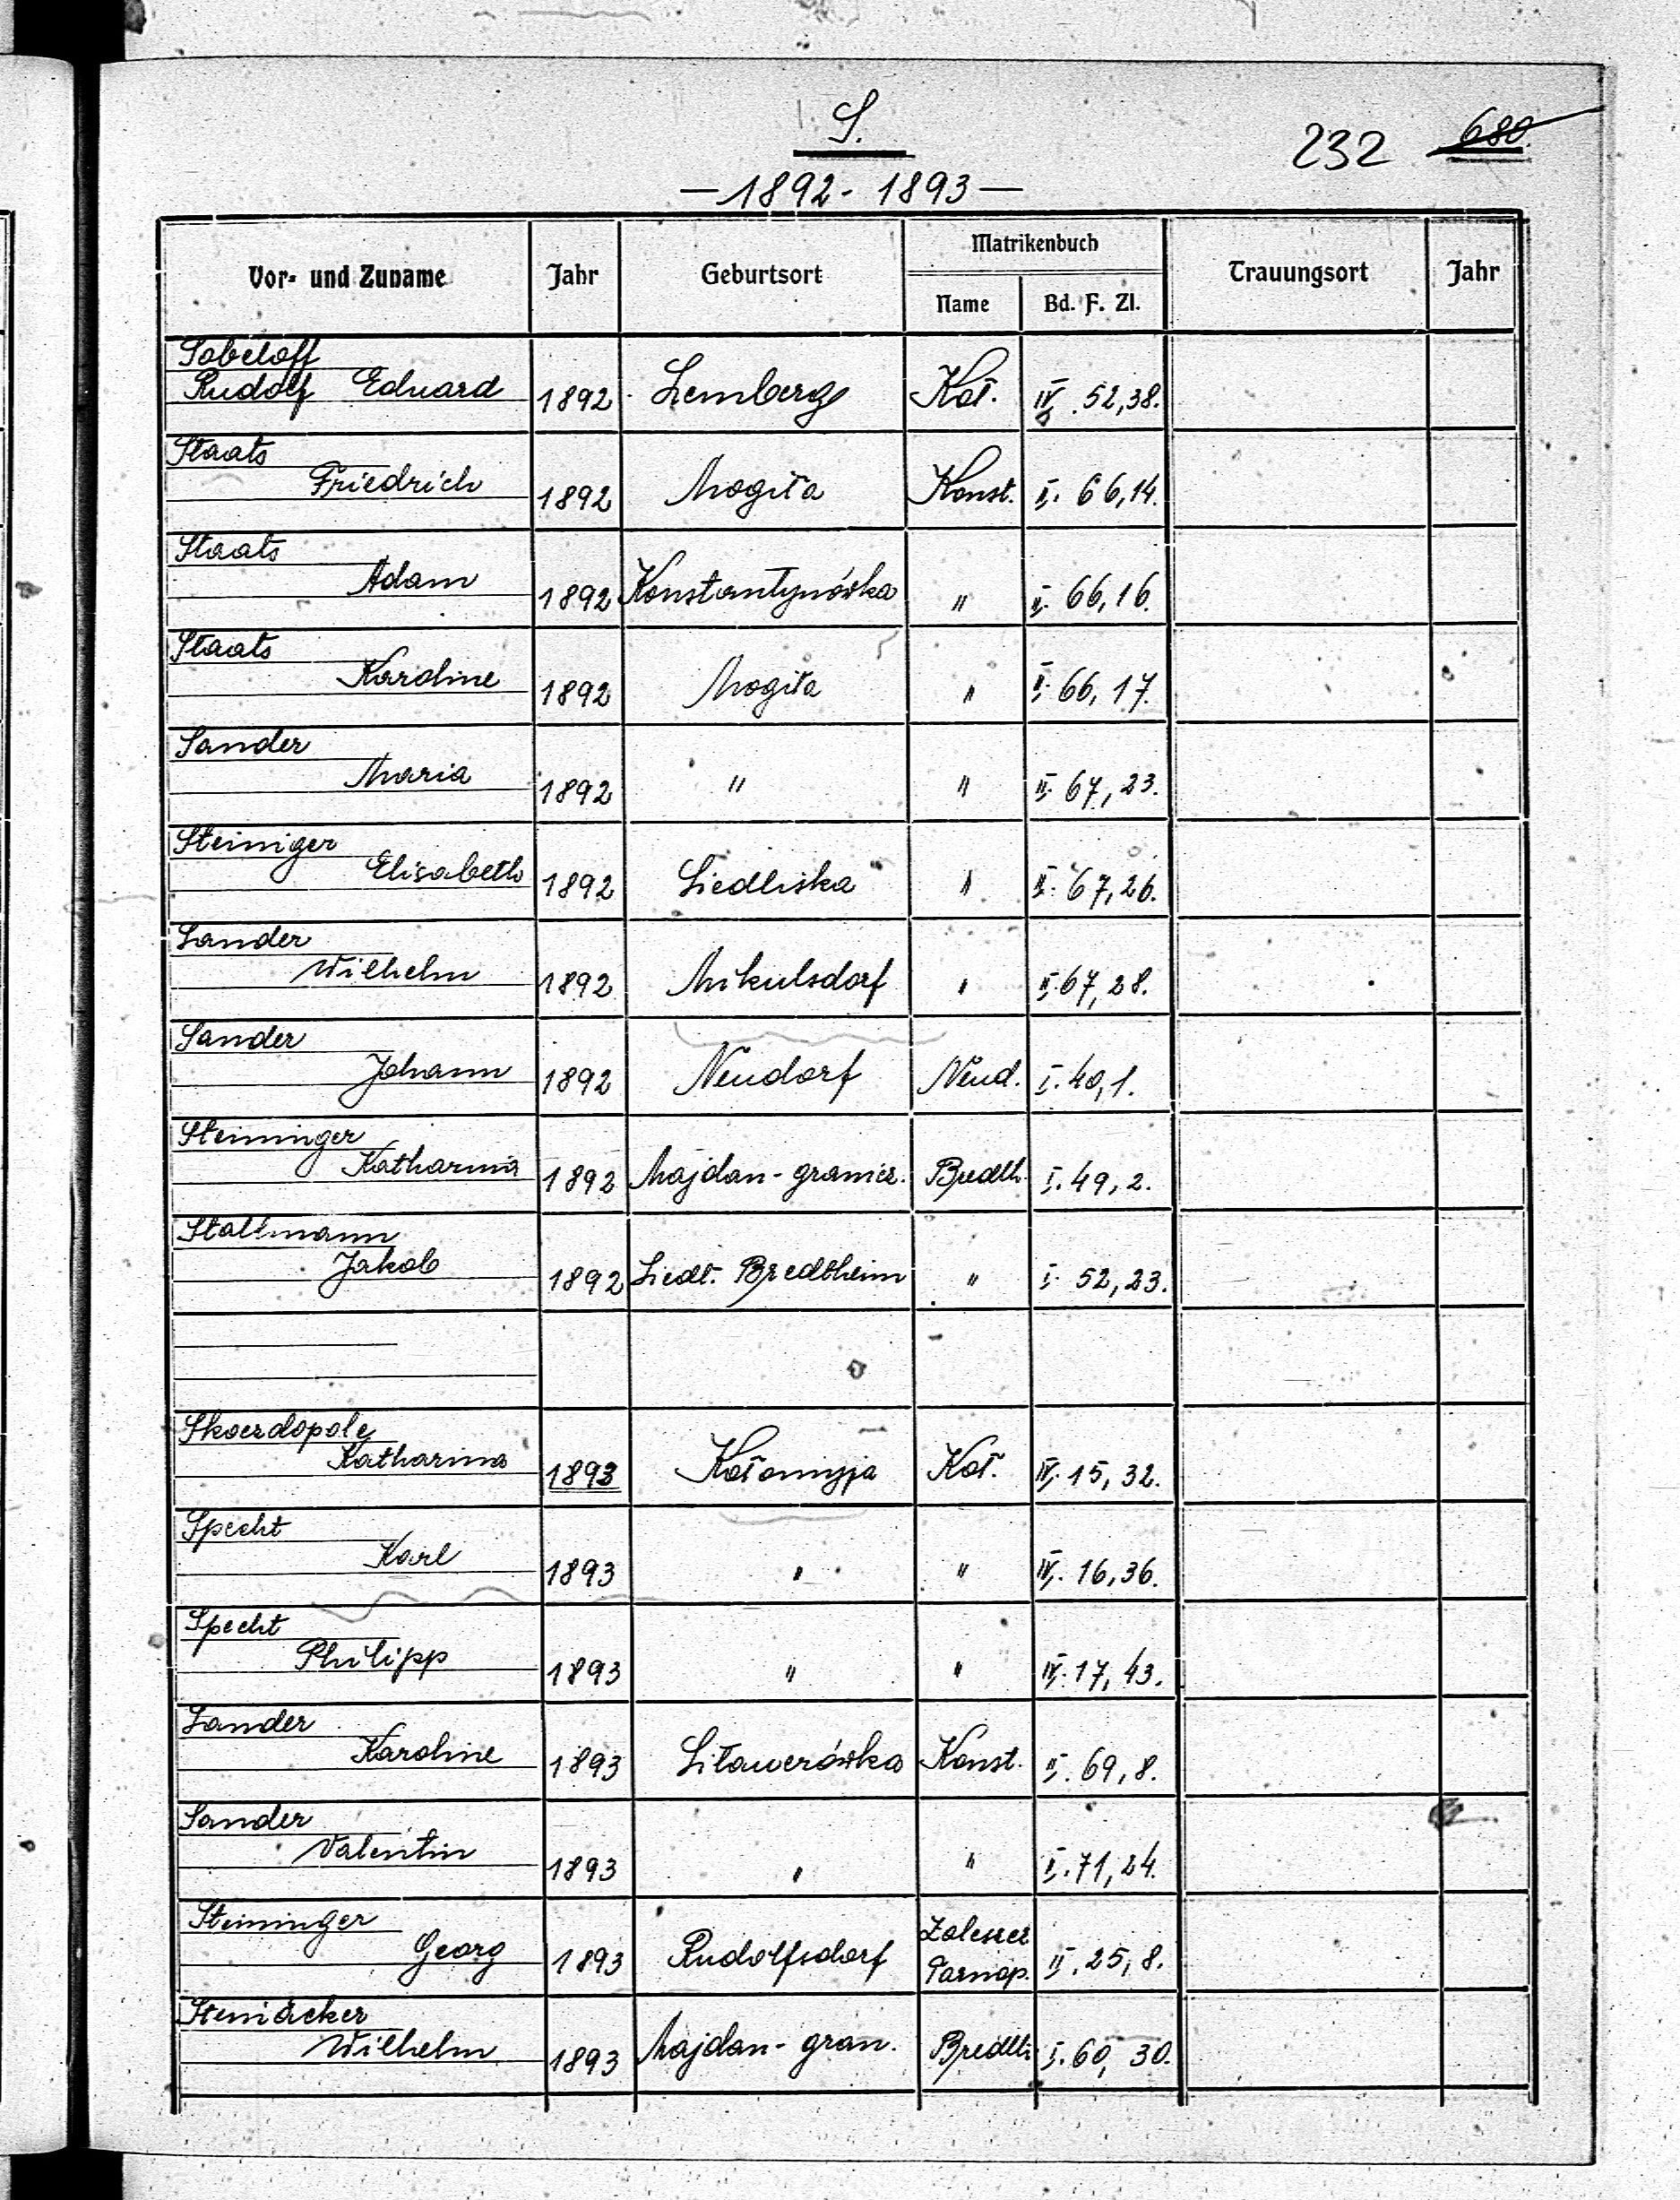 S.
232 680.
— 1892 - 1893 —
Vor- und Zuname Jahr Geburtsort Matrikenbuch Trauungsort Jahr
Name Bd. F. Zl.
Sobeloff
Rudolf Eduard 1892 Lemberg Koł. IV. 52,38.
Staats
Friedrich 1892 Mogiła Konst. II. 66,14.
Staats
Adam 1892 Konstantynówka " II. 66,16.
Staats
Karoline 1892 Mogiła " II. 66,17.
Sander
Maria 1892 " " II. 67,23.
Steiniger
Elisabeth 1892 Siedliska " II. 67,26.
Sander
Wilhelm 1892 Mikulsdorf " II. 67,28.
Sander
Johann 1892 Neudorf Neud. I. 40,1.
Steininger
Katharina 1892 Majdan-granicz. Bredth. I. 49,2.
Stallmann
Jakob 1892 Siedl. Bredtheim " I. 52,23.
Skoerdopole
Katharina 1893 Kołomyja Koł. IV. 15,32.
Specht
Karl 1893 " " IV. 16,36.
Specht
Philipp 1893 " " IV. 17,43.
Sander
Karoline 1893 Sitawerówka Konst. II. 69,8.
Sander
Valentin 1893 " " II. 71,24.
Steininger
Georg 1893 Rudolfsdorf Zaleszcz Tarnop. II. 25,8.
Steinäcker
Wilhelm 1893 Majdan-gran. Bredth. I. 60, 30.